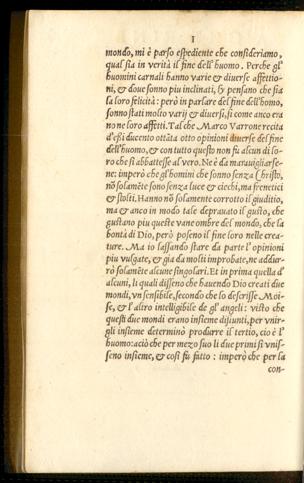 I
mondo, mi è parso espediente che consideriamo,
qual sia in verità il fine dell'huomo. Perche gl'
huomini carnali hanno varie & diverse affettio-
ni, & dove sonno piu inclinati, li pensano che sia
la loro felicità: però in parlare del fine dell'homo,
sonno stati molto varij & diversi, si come anco era
no ne loro affetti. Tal che Marco Varrone recita
d'essi ducento ottãta otto opinioni diverse del fine
dell'huomo, & con tutto questo non fu alcun di lo-
ro che si abbattesse al vero. Ne è da maravigliarse-
ne: imperò che gl'homini che sonno senza Christo,
nõ solamẽte sono senza luce & ciechi, ma frenetici
& stolti. Hanno nõ solamente corrotto il giuditio,
ma & anco in modo tale depravato il gusto, che
gustano piu queste vane ombre del mondo, che la
bontà di Dio, però poseno il fine loro nelle crea-
ture. Ma io lassando stare da parte l'opinioni
piu vulgate, & gia da molti improbate, ne addur-
rò solamẽte alcune singolari. Et in prima quella d'
alcuni, li quali disseno che havendo Dio creati due
mondi, un sensibile, secondo che lo descrisse Moi-
se, & l'altro intelligibile de gl'angeli: visto che
questi due mondi erano insieme disiunti, per unir-
gli insieme determinò produrre il tertio, cio è l'
huomo: aciò che per mezo suo li due primi si unis-
seno insieme, & così fu fatto: imperò che per la
con-